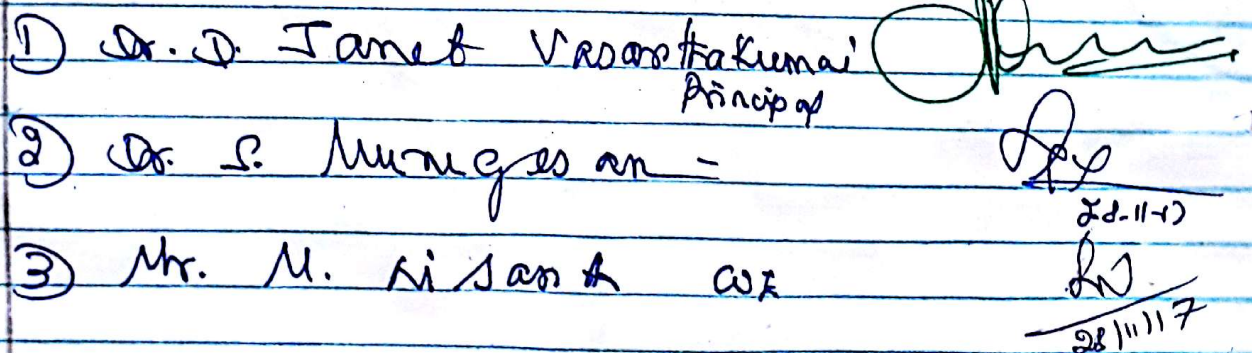 1) Dr. D. Janet Vasanthakumai
Principal
2) Dr. S. Murugesan =
28-11-17
3) Mr. M. Nisanth
28/11/17